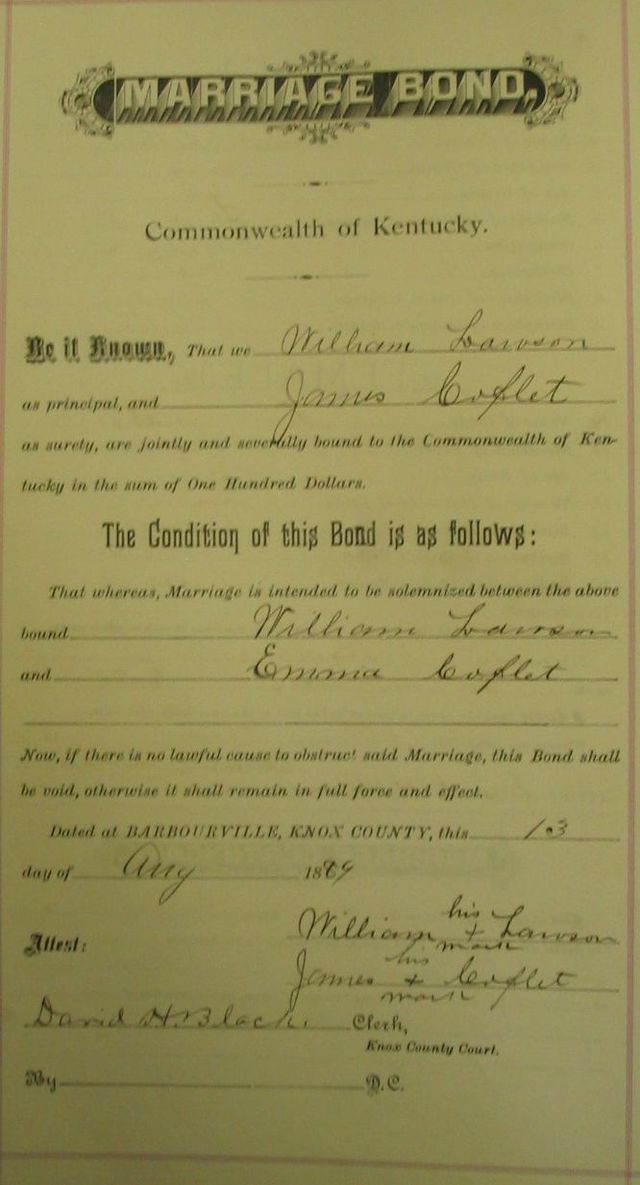 MARRIAGE BOND,
Commonwealth of Kentucky.
Be it Known, That we William Lawson
as principal, and James Coflet
as surety, are jointly and severally bound to the Commonwealth of Ken-
tucky in the sum of One Hundred Dollars.
The Condition of this Bond is as follows:
That whereas, Marriage is intended to be solemnized between the above
bound William Lawson
and Emma Coflet
Now, if there is no lawful cause to obstruct said Marriage, this Bond shall
be void, otherwise it shall remain in full force and effect.
Dated at BARBOURVILLE, KNOX COUNTY, this 13
day of Aug
William his + mark Lawson
Attest:
James his + mark Coflet
David H. Black. Clerk,
Knox County Court.
By D.C.